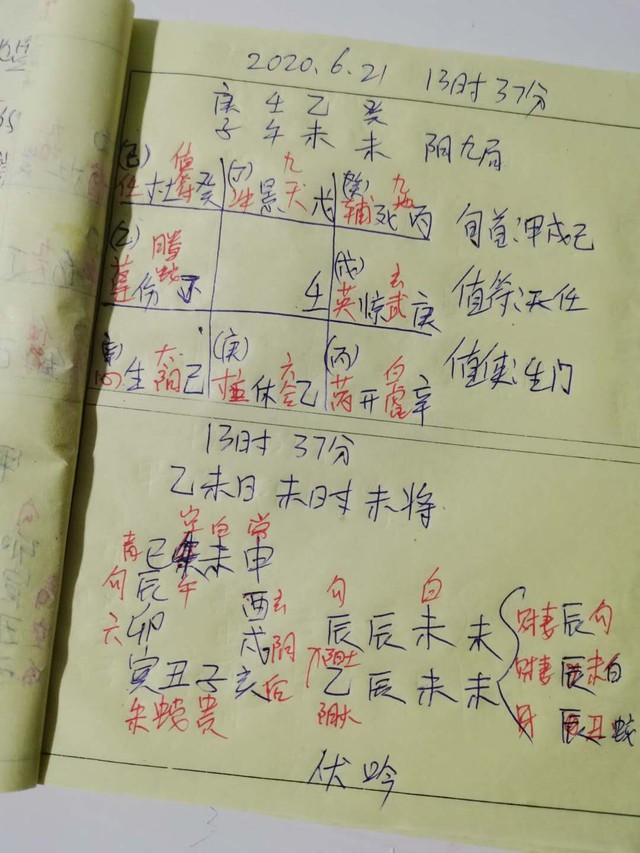 2020.6.21 13时37分
庚 壬 乙 癸
子 午 未 未 阳九局
值符 九天 九地
任 癸 景 戊 辅死丙 旬首:甲戌己
(乙) 腾蛇 (戊) 玄武
伤 壬 英惊 庚 值符:天任
太阳 (庚) 六合 (丙) 白虎
生 己 休 乙 芮开 辛 值使:生门
13时37分
乙未日 未时 未将
空 白 常
青 巳 未 申
勾 辰 午 酉 玄 勾 白
六 卯 戌 阴 辰 辰 未 未 财妻辰勾
寅 丑 子 亥 后 阳土 乙 辰 未 未 财妻未白
朱 蛇 贵 丑蛇
伏吟